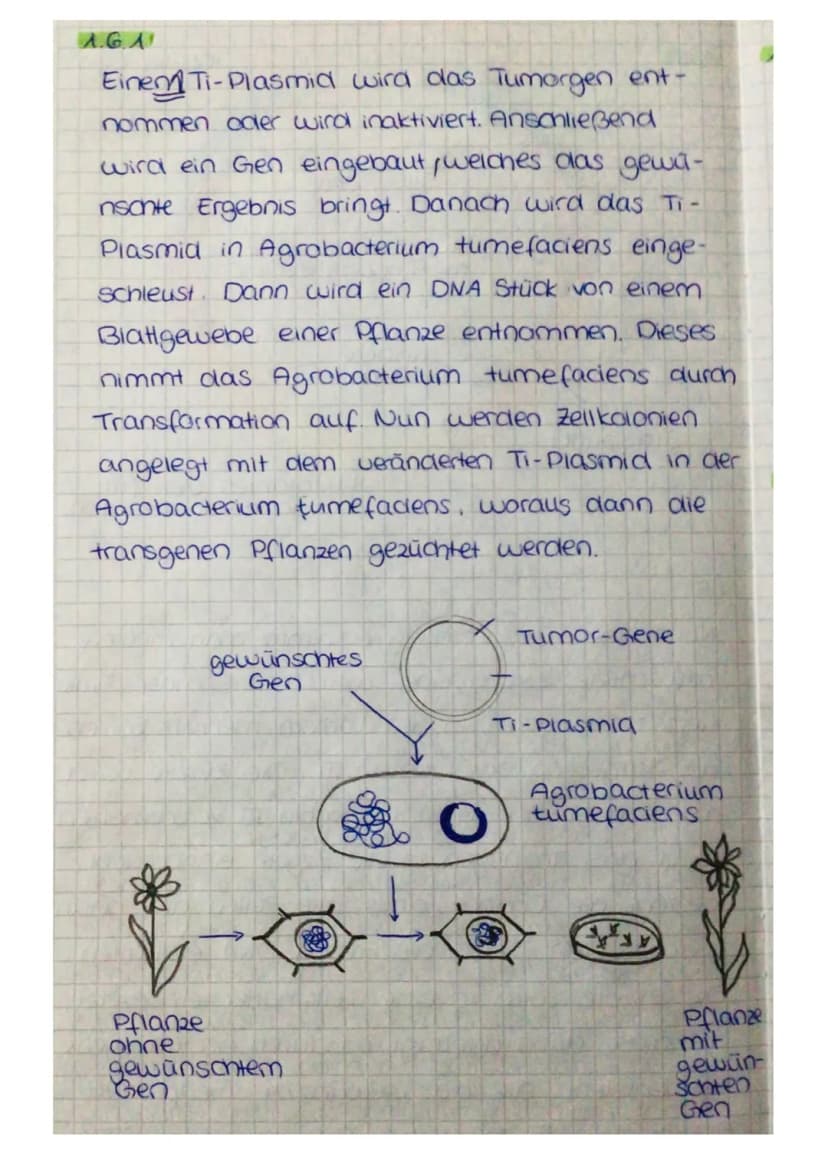 A.G.1
Einem Ti-Plasmid wird das Tumorgen ent-
nommen oder wird inaktiviert. Anschließend
wird ein Gen eingebaut, welches das gewü-
nschte Ergebnis bringt. Danach wird das Ti-
Plasmid in Agrobacterium tumefaciens einge-
schleust. Dann wird ein DNA Stück von einem
Blattgewebe einer Pflanze entnommen. Dieses
nimmt das Agrobacterium tumefaciens durch
Transformation auf. Nun werden Zellkolonien
angelegt mit dem veränderten Ti-Plasmid in der
Agrobacterium tumefaciens, woraus dann die
transgenen Pflanzen gezüchtet werden.
Tumor-Gene
gewünschtes
Gen
Ti-Plasmid
Agrobacterium
tumefaciens
Pflanze
ohne
gewünschtem
Gen
Pflanze
mit
gewün-
schten
Gen